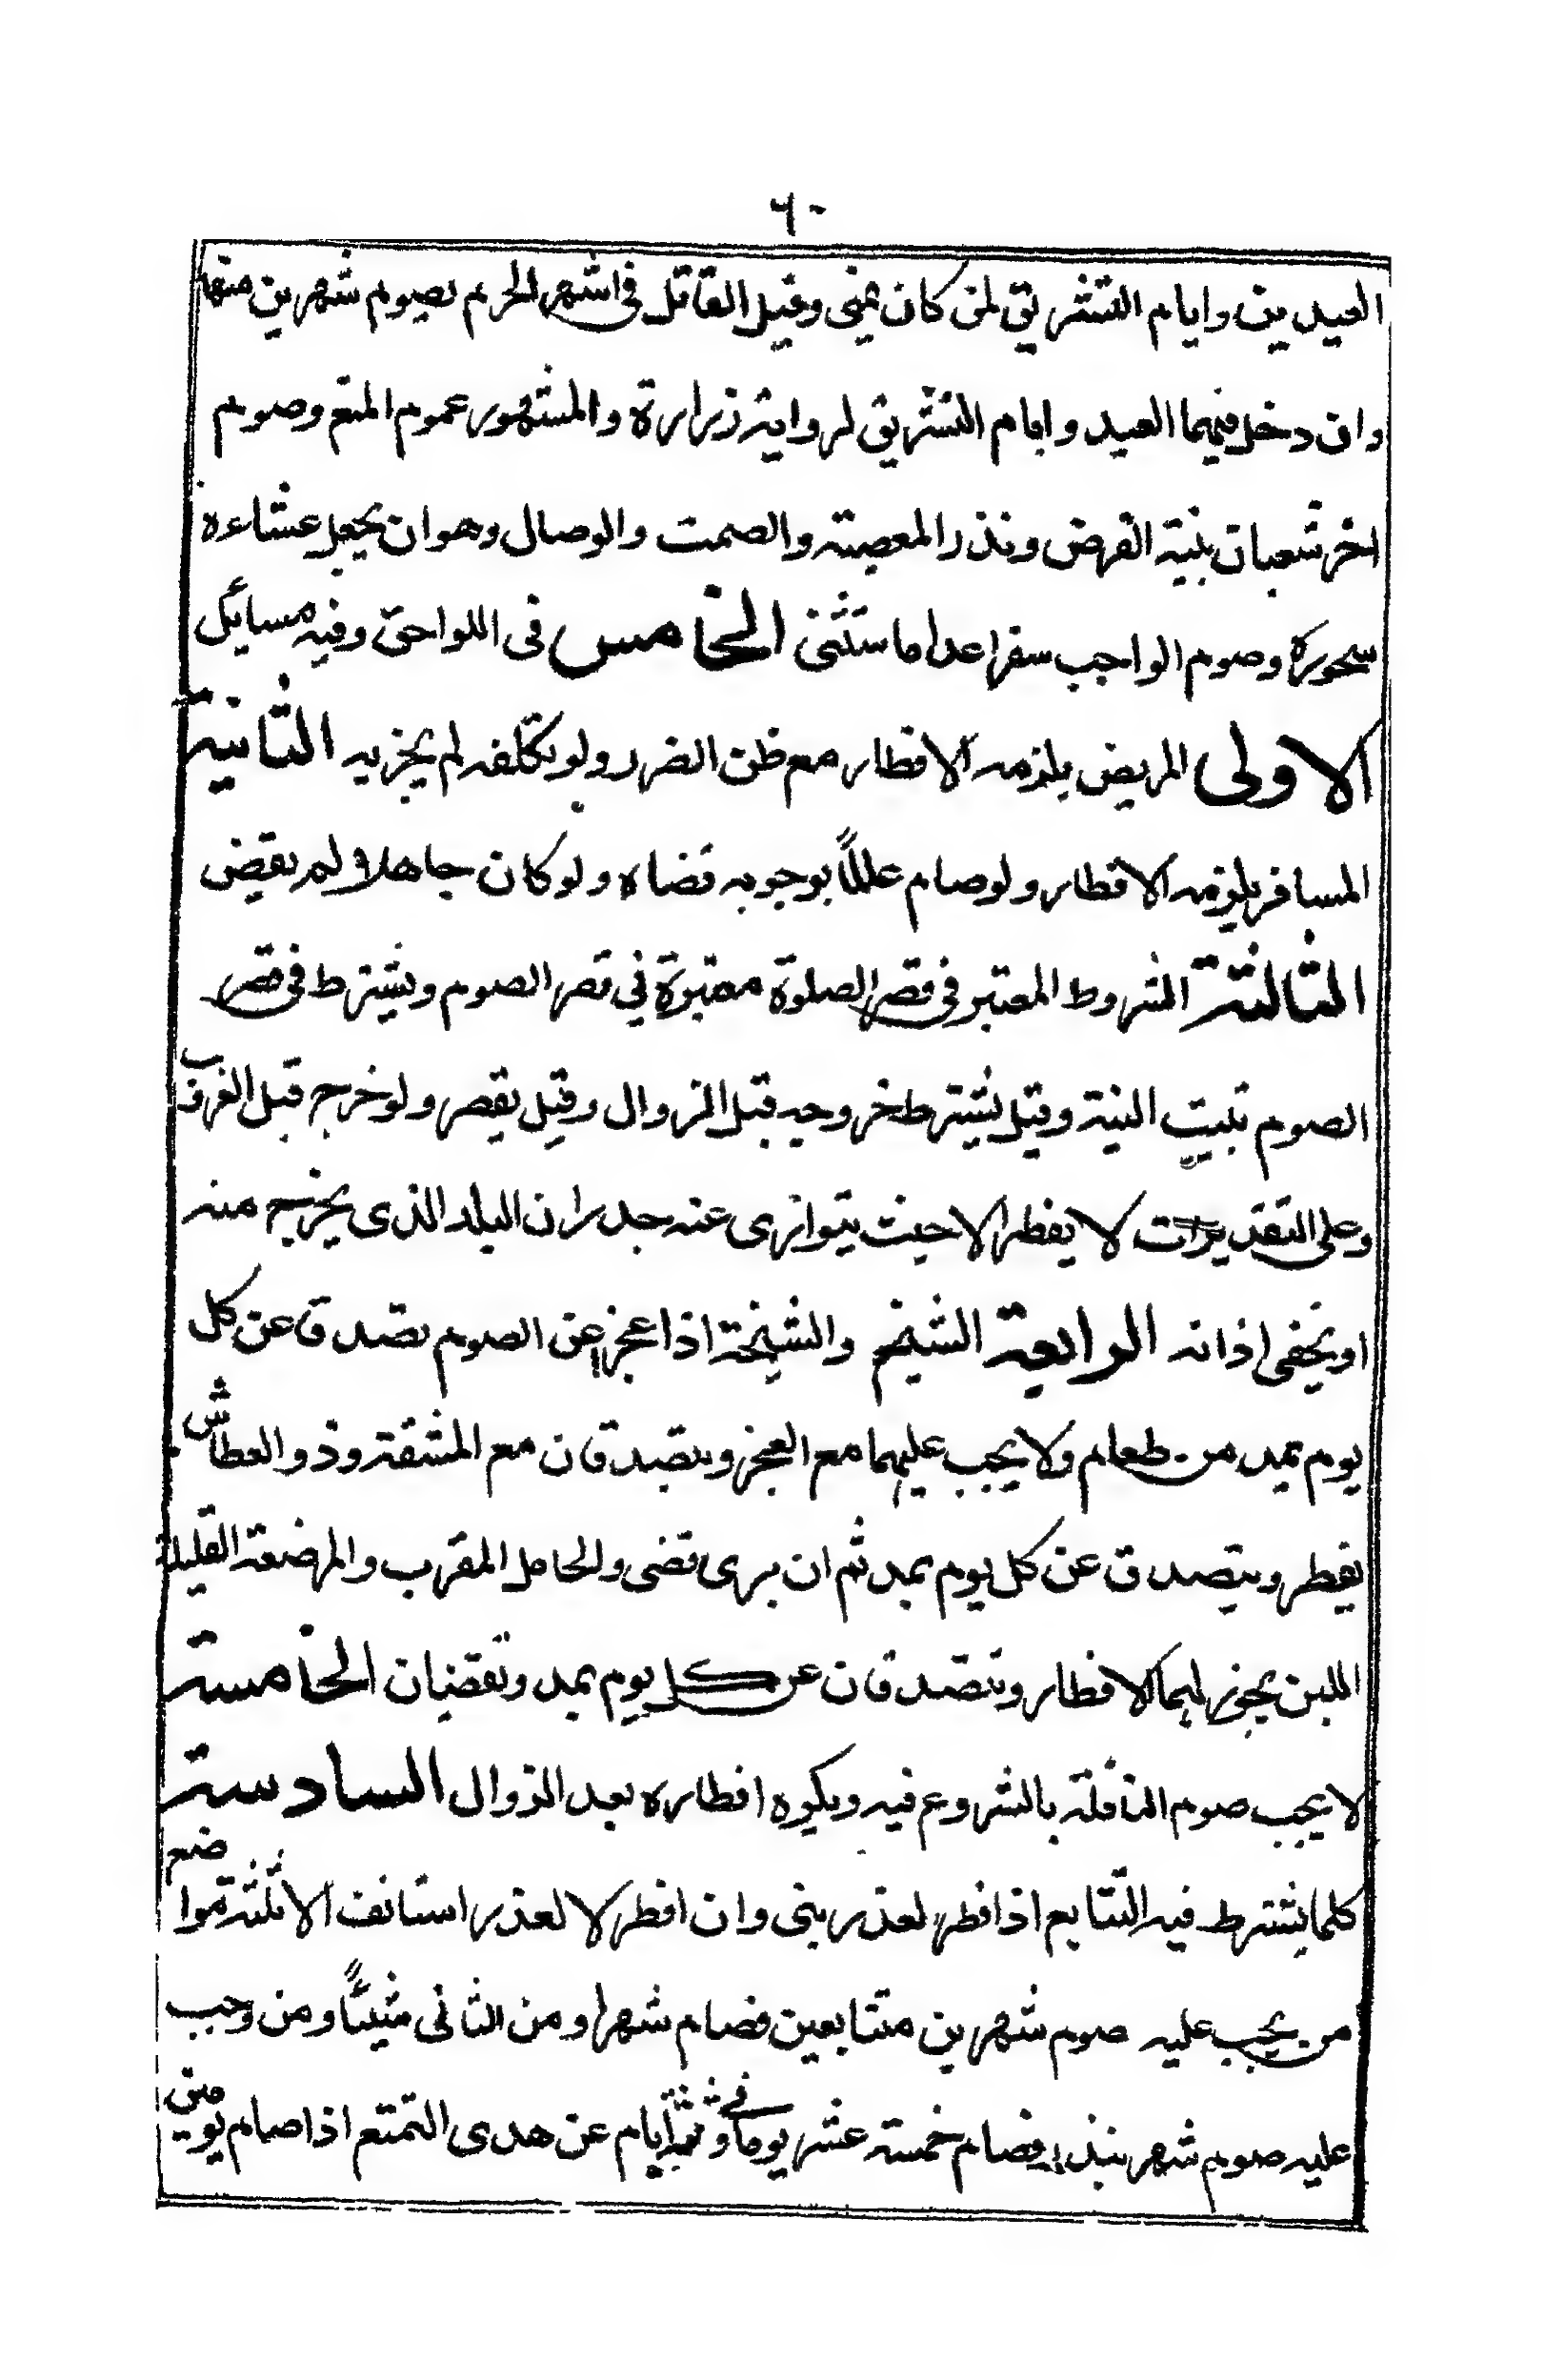 ٦٠
العيدين وايام التشريق لمن كان بمنى وقيل القاتل فى اشهر الحرم يصوم شهرين منها
وان دخل فيهما العيد وايام التشريق لرواية زرارة والمشهور عموم المنع وصوم
اخر شعبان بنية الفرض ونذر المعصية والصمت والوصال وهو ان يجعل عشاءه
سحوره وصوم الواجب سفرا عدا ما ستثنى الخامس فى اللواحق وفيه مسايل
الاولى المريض يلزمه الافطار مع ظن الضرر ولو تكلفه لم يجزيه الثانية
المسافر يلزمه الافطار ولو صام عالمًا بوجوبه قضاه ولو كان جاهلا لم يقض
الثالثة الشروط المعتبر فى قصر الصلوة معتبرة في قصر الصوم ويشترط فى قصر
الصوم تبيت النية وقيل يشترط خروجه قبل الزوال وقيل يقصر ولو خرج قبل الغروب
وعلى التقديرات لا يفطر الا حيث يتوارى عنه جدران البلد الذى يخرج منه
او يخفى اذانه الرابعة الشيخ والشيخة اذا عجزا عن الصوم تصدقا عن كل
يوم بمد من طعام ولا يجب عليهما مع العجز ويتصدقان مع المشقة وذو العطاش
يفطر ويتصدق عن كل يوم بمد ثم ان برى قضى والحامل المقرب والمرضعة القليلة
اللبن يجوز لهما الافطار وتتصدقان عن كل يوم بمد وتقضيان الخامسة
لا يجب صوم النافلة بالشروع فيه ويكره افطاره بعد الزوال السادسة
كلما يشترط فيه التتابع اذا افطر لعذر بنى وان افطر لا لعذر استانف الا ثلثة مواضع
من يجب عليه صوم شهرين متتابعين فصام شهرا ومن الثانى شيئًا ومن وجب
عليه صوم شهر بنذر فصام خمسة عشر يوما وفى ثلثة ايام عن هدى التمتع اذا صام يومين